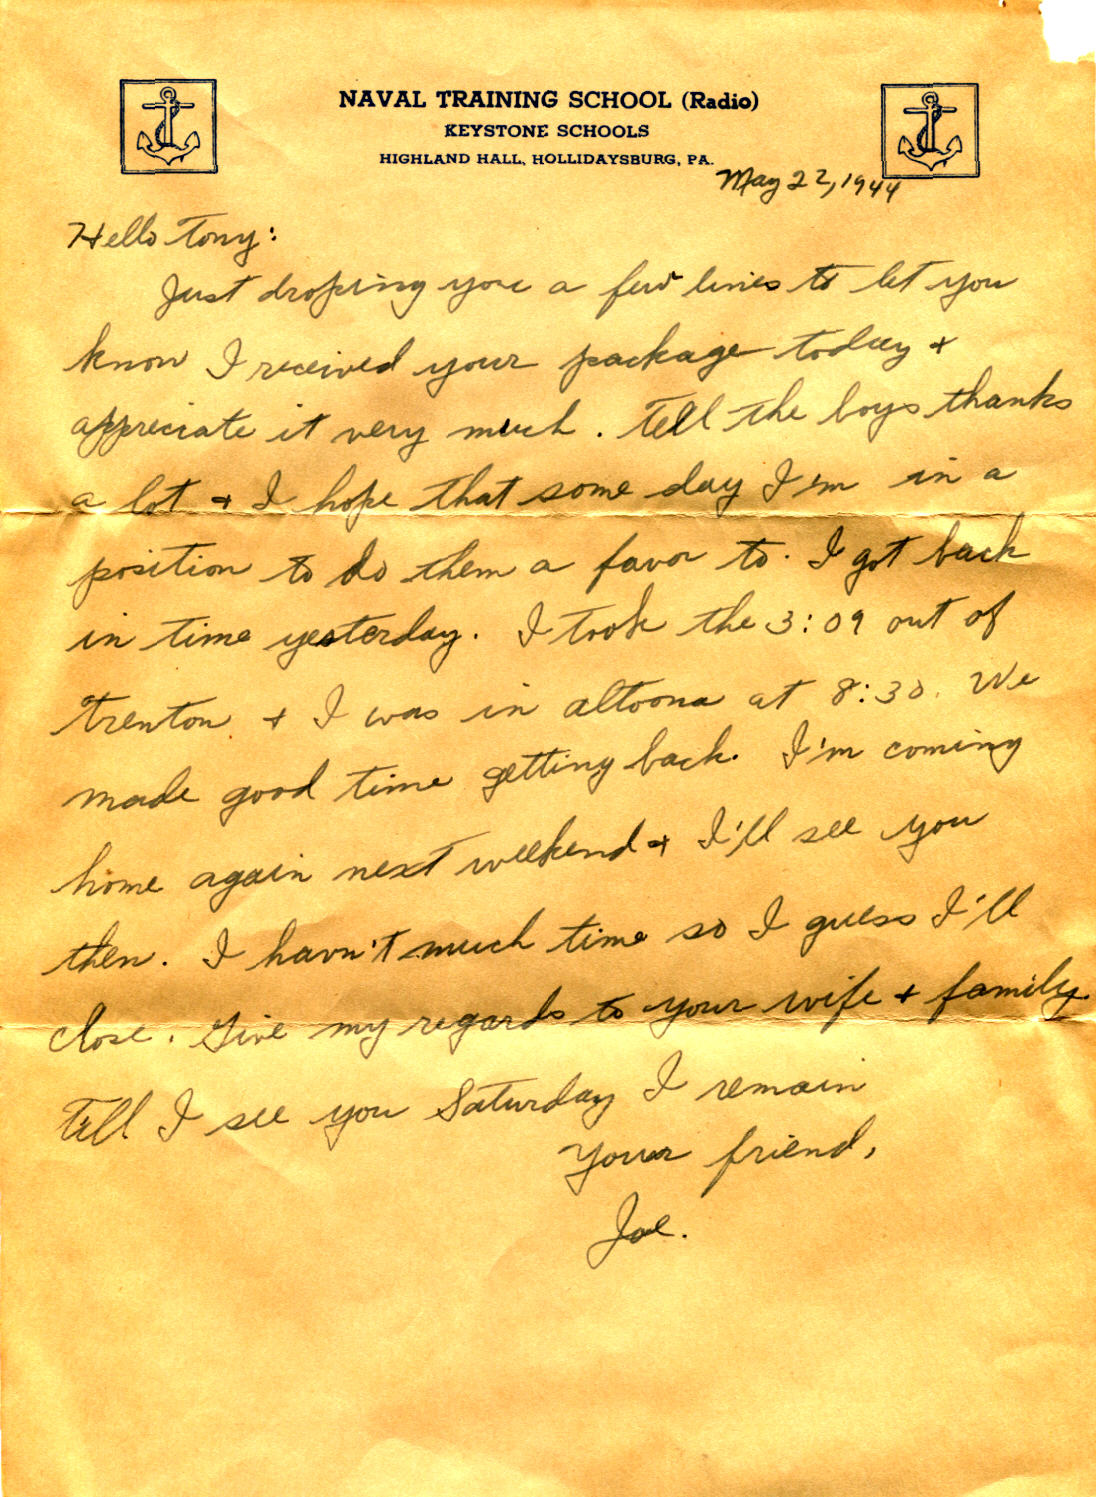 NAVAL TRAINING SCHOOL (Radio)
KEYSTONE SCHOOLS
HIGHLAND HALL, HOLLIDAYSBURG, PA.
May 22, 1944
Hello Tony:
Just droping you a few lines to let you
know I received your package today +
appreciate it very much. Tell the boys thanks
a lot + I hope that some day I'm in a
position to do them a favor to. I got back
in time yesterday. I took the 3:09 out of
Trenton + I was in altoona at 8:30. We
made good time getting back. I'm coming
home again next weekend + I'll see you
then. I havn't much time so I guess I'll
close. Give my regards to your wife + family.
Till I see you Saturday I remain
Your friend,
Joe.